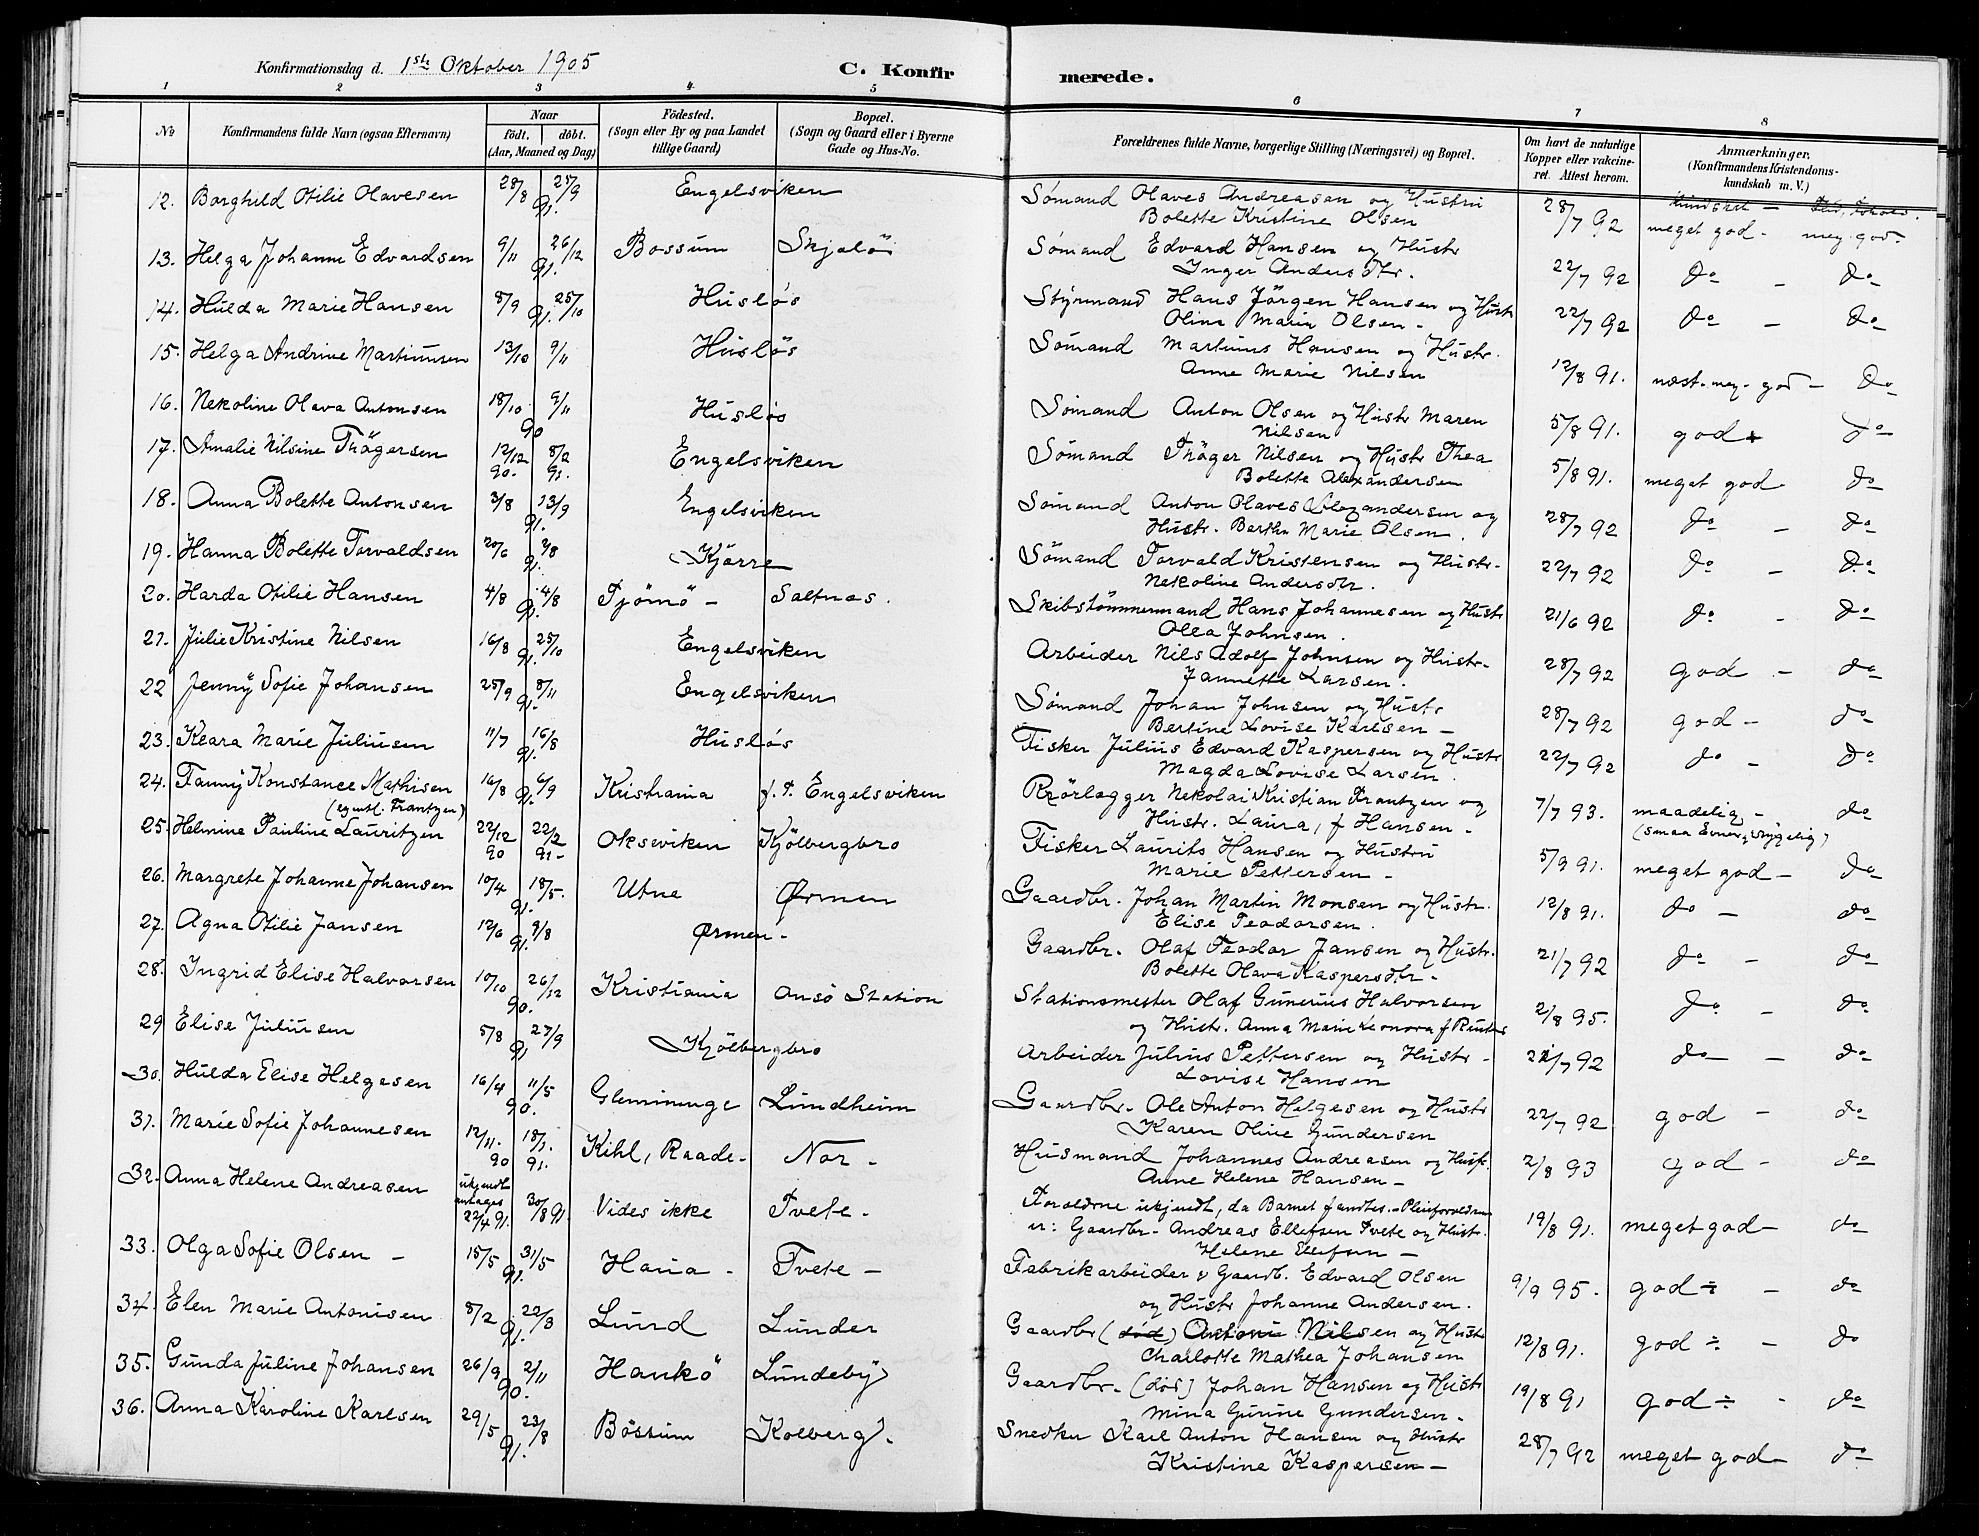 Konfirmationsdag d. 1ste Oktober 1905 C. Konfir merede.
1 2 3 4. 5 6 7 8
No Konfirmandens fulde Navn (ogsaa Efternavn) Naar födt. döbt. (Aar, Maaned og Dag) Födested. (Sogn eller By og paa Landet tillige Gaard) Bopæl. (Sogn og Gaard eller i Byerne Gade og Hus-No. Forældrenes fulde Navne, borgerlige Stilling (Næringsvei) og Bopæl. Om havt de naturlige Kopper eller vakcineret. Attest herom. Anmærkninger. (Konfirmandens Kristendomskundskab m. V.)
12. Borghild Otilie Olavesen 28/8 27/9 91. Engelsviken Sømand Olaves Andreasen og Hustru 28/7 92 meget god - meg. god.
Bolette Kristine Olsen
13. Helga Johanne Edvardsen 9/11 26/12 91. Bossum Skjælö Sømand Edvard Hansen og Hustr 22/7 92 do - do
Inger Andersdtr.
14. Hulda Marie Hansen 8/9 25/10 91. Husløs Styrmand Hans Jörgen Hansen og Hustr 22/7 92 do - do
Oline Marie Olsen -
15. Helga Andrine Martinusen 13/10 9/11 Husløs Sømand Martinus Hansen og Hustr. 12/8 91. næst. meg. god - do
Anne Marie Nilsen
16. Nekoline Olava Antonsen 18/10 9/11 90 Husløs Sømand Anton Olsen og Hustr Maren 5/8 91. god do
Nilsen
17. Amalie Nilsine Thögersen 12/12 90. 8/2 91. Engelsviken Sømand Thöger Nilsen og Hustr Thea 5/8 91. meget god do
Bolette Alexandersen
18. Anna Bolette Antonsen 3/8 13/9 91. Engelsviken Sømand Anton Olaves Alexandersen og 28/7 92 do - do
Hustr. Berthe Marie Olsen.
19. Hanna Bolette Torvaldsen 20/6 2/8 91. Kjærre Sömand Torvald Kristensen og Hustr- 22/7 92 do - do
Nekoline Andersdtr.
20. Harda Otilie Hansen 4/8 4/8 91. Tjömö - Saltnes. Skibstömmermand Hans Johannesen og Hustr 21/6 92 do - do
Olea Johnsen.
21. Julie Kristine Nilsen 16/8 25/10 91. Engelsviken Arbeider Nils Adolf Johnsen og Hustr- 28/7 92 god - do
Jannette Larsen.
22 Jenny Sofie Johansen 25/9 8/11 91. Engelsviken Sømand Johan Johnsen og Hustr 28/7 92 god - do
Bertine Lovise Karlsen -
23. Klara Marie Juliusen 11/7 16/8 91. Husløs Fisker Julius Edvard Kaspersen og Hustr 22/7 92 do - do
Magda Lovise Larsen
24. Fanny Konstance Mathisen 16/8 6/9 91. Kristiania f. t. Engelsviken Rørlægger Nekolai Kristian Frantzen og 7/7 93. maadelig - do
(egentl. Frantzen) Hustr. Laura, f Hansen - (smaa Evner, sygelig)
25. Helmine Pauline Lauritzen 22/12 90 22/2 91- Okseviken Kjölbergbro Fisker Laurits Hansen og Hustru 5/9 91. meget god - do
Marie Pettersen -
26. Margrete Johanne Johansen 10/4 18/5. 91. Utne Ørmen Gaardbr. Johan Martin Monsen og Hustr. 12/8 91. do - do
Elise Teodorsen.
27. Agna Otilie Jansen 12/6 9/8 91. Ørmen - Gaardbr. Olaf Teodor Jansen og Hustr. 21/7 92 do - do
Bolette Olava Kaspersdtr -
28. Ingrid Elise Halvorsen 10/10 26/12 90. Kristiania Onsö Station Stationsmester Olaf Gunerius Halvorsen 2/8 95. do - do
og Hustr. Anna Marie Leonora f
29 Elise Juliusen 5/8 27/9 91 Kjölbergbro Arbeider Julius Pettersen og Hustr - 22/7 92 do - do
Lovise Hansen
30. Hulda Elise Helgesen 16/4 11/5 90. Glemminge Lundheim Gaardbr. Ole Anton Helgesen og Hustr 22/7 92 god - do
Karen Oline Gundersen
31. Marie Sofie Johannesen 12/11. 90 18/1. 91. Kihl, Raade- Nor - Husmand Johannes Andreasen og Hustr. 2/8 93 god - do
Anne Helene Hansen -
32. Anna Helene Andreasen ukjendt antages 22/4 91. 30/8 91. Vides ikke Tvete - Forældrne ukjendt, da Barnet fandtes. - Pleieforældrene
er: Gaardbr. Andreas Ellefsen Tvete og Hustr. 19/8 91. meget god - do
Helene Ellefsen -
33. Olga Sofie Olsen - 15/5 31/5 91. Haua - Tvete - Fabrikarbeider & Gaardb. Edvard Olsen 9/9 95. god ÷ - do
og Hustr Johanne Andersen.
34. Elen Marie Antonisen 8/2 22/3 91. Lund Lunder Gaardbr (död) Antoni Nilsen og Hustr 12/8 91. god ÷ - do
Charlotte Mathea Johansen
35. Gunda Juline Johansen 26/9 2/11 90. Hankö Lundeby Gaardbr. (död) Johan Hansen og Hustr 19/8 91 god ÷ - do
Mina Gurine Gundersen.
36. Anna Karoline Karlsen 29/5 23/8 91. Bössum Kolberg. Snedker Karl Anton Hansen og Hustr 28/7 92 meget god - do
Kristine Kaspersen -